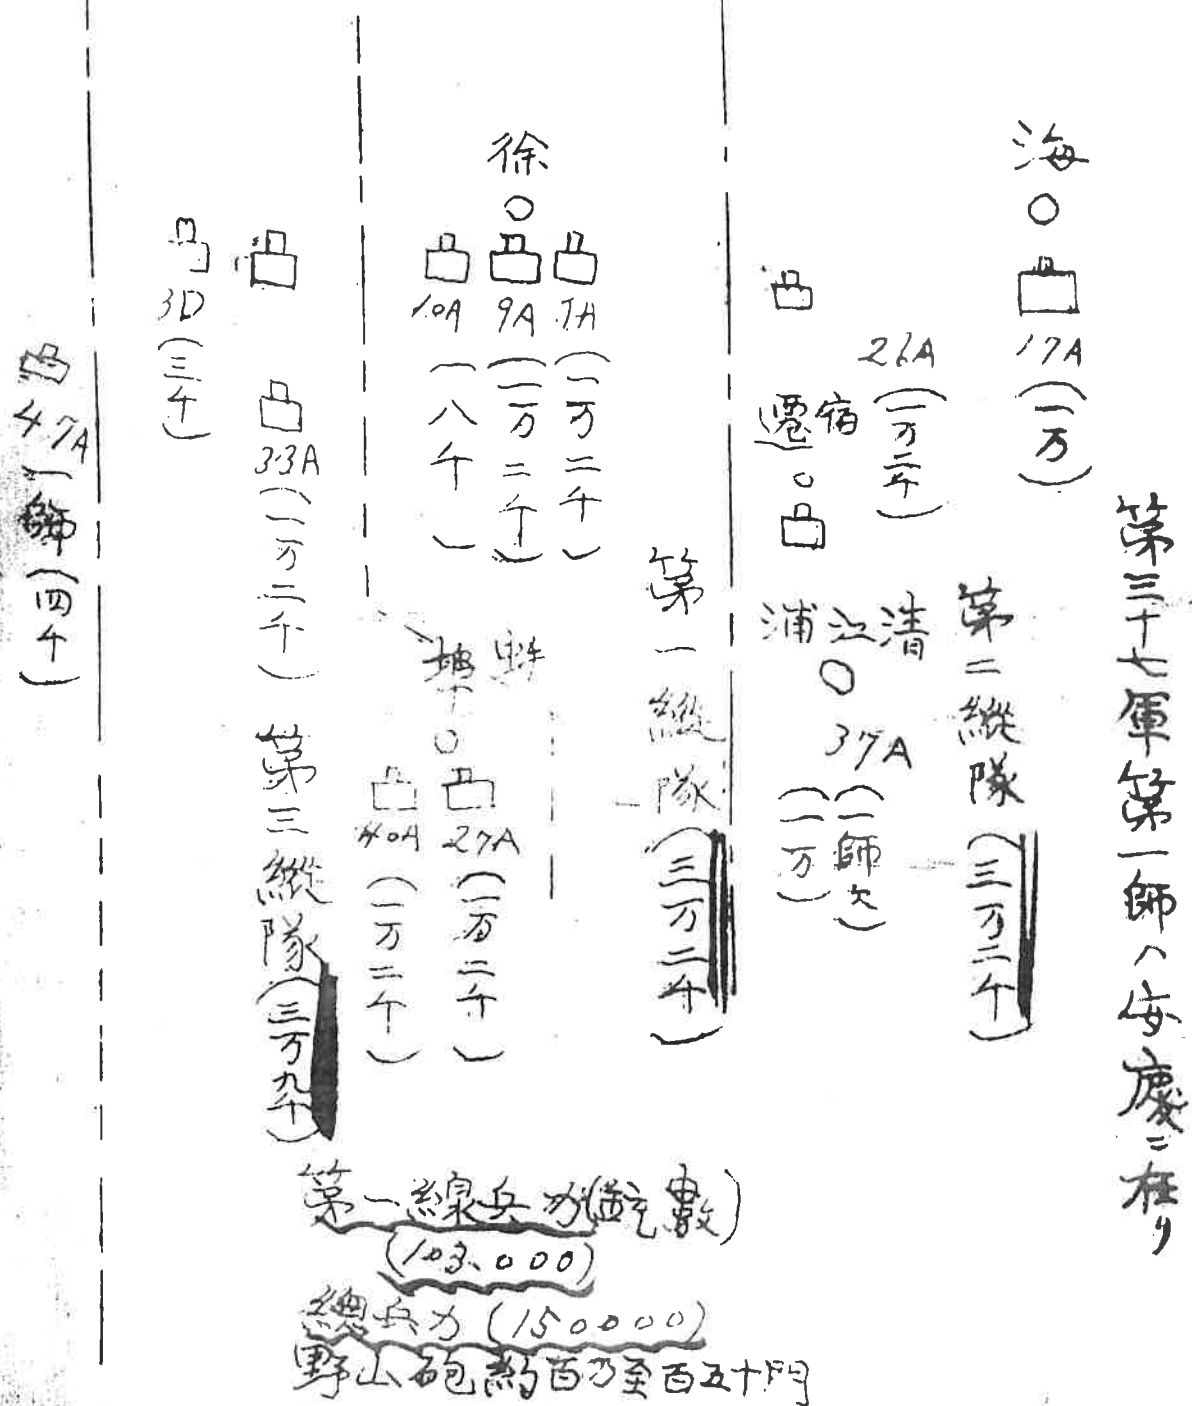 第三十七軍第一師ハ安慶ニ在リ
海
17A
(一万)
26A
(一万二千)
宿遷
第二縦隊 (三万二千)
清江浦
37A
(一師欠)
(一万)
第一縦隊 (三万二千)
徐
7A (一万二千)
9A (一万二千)
10A (八千)
蚌埠
27A (一万二千)
40A (一万二千)
33A (一万二千)
第三縦隊 (三万九千)
3D (三千)
47A 一師 (四千)
第一線兵力(銃數)
(103,000)
總兵力 (150000)
野山砲約百乃至百五十門